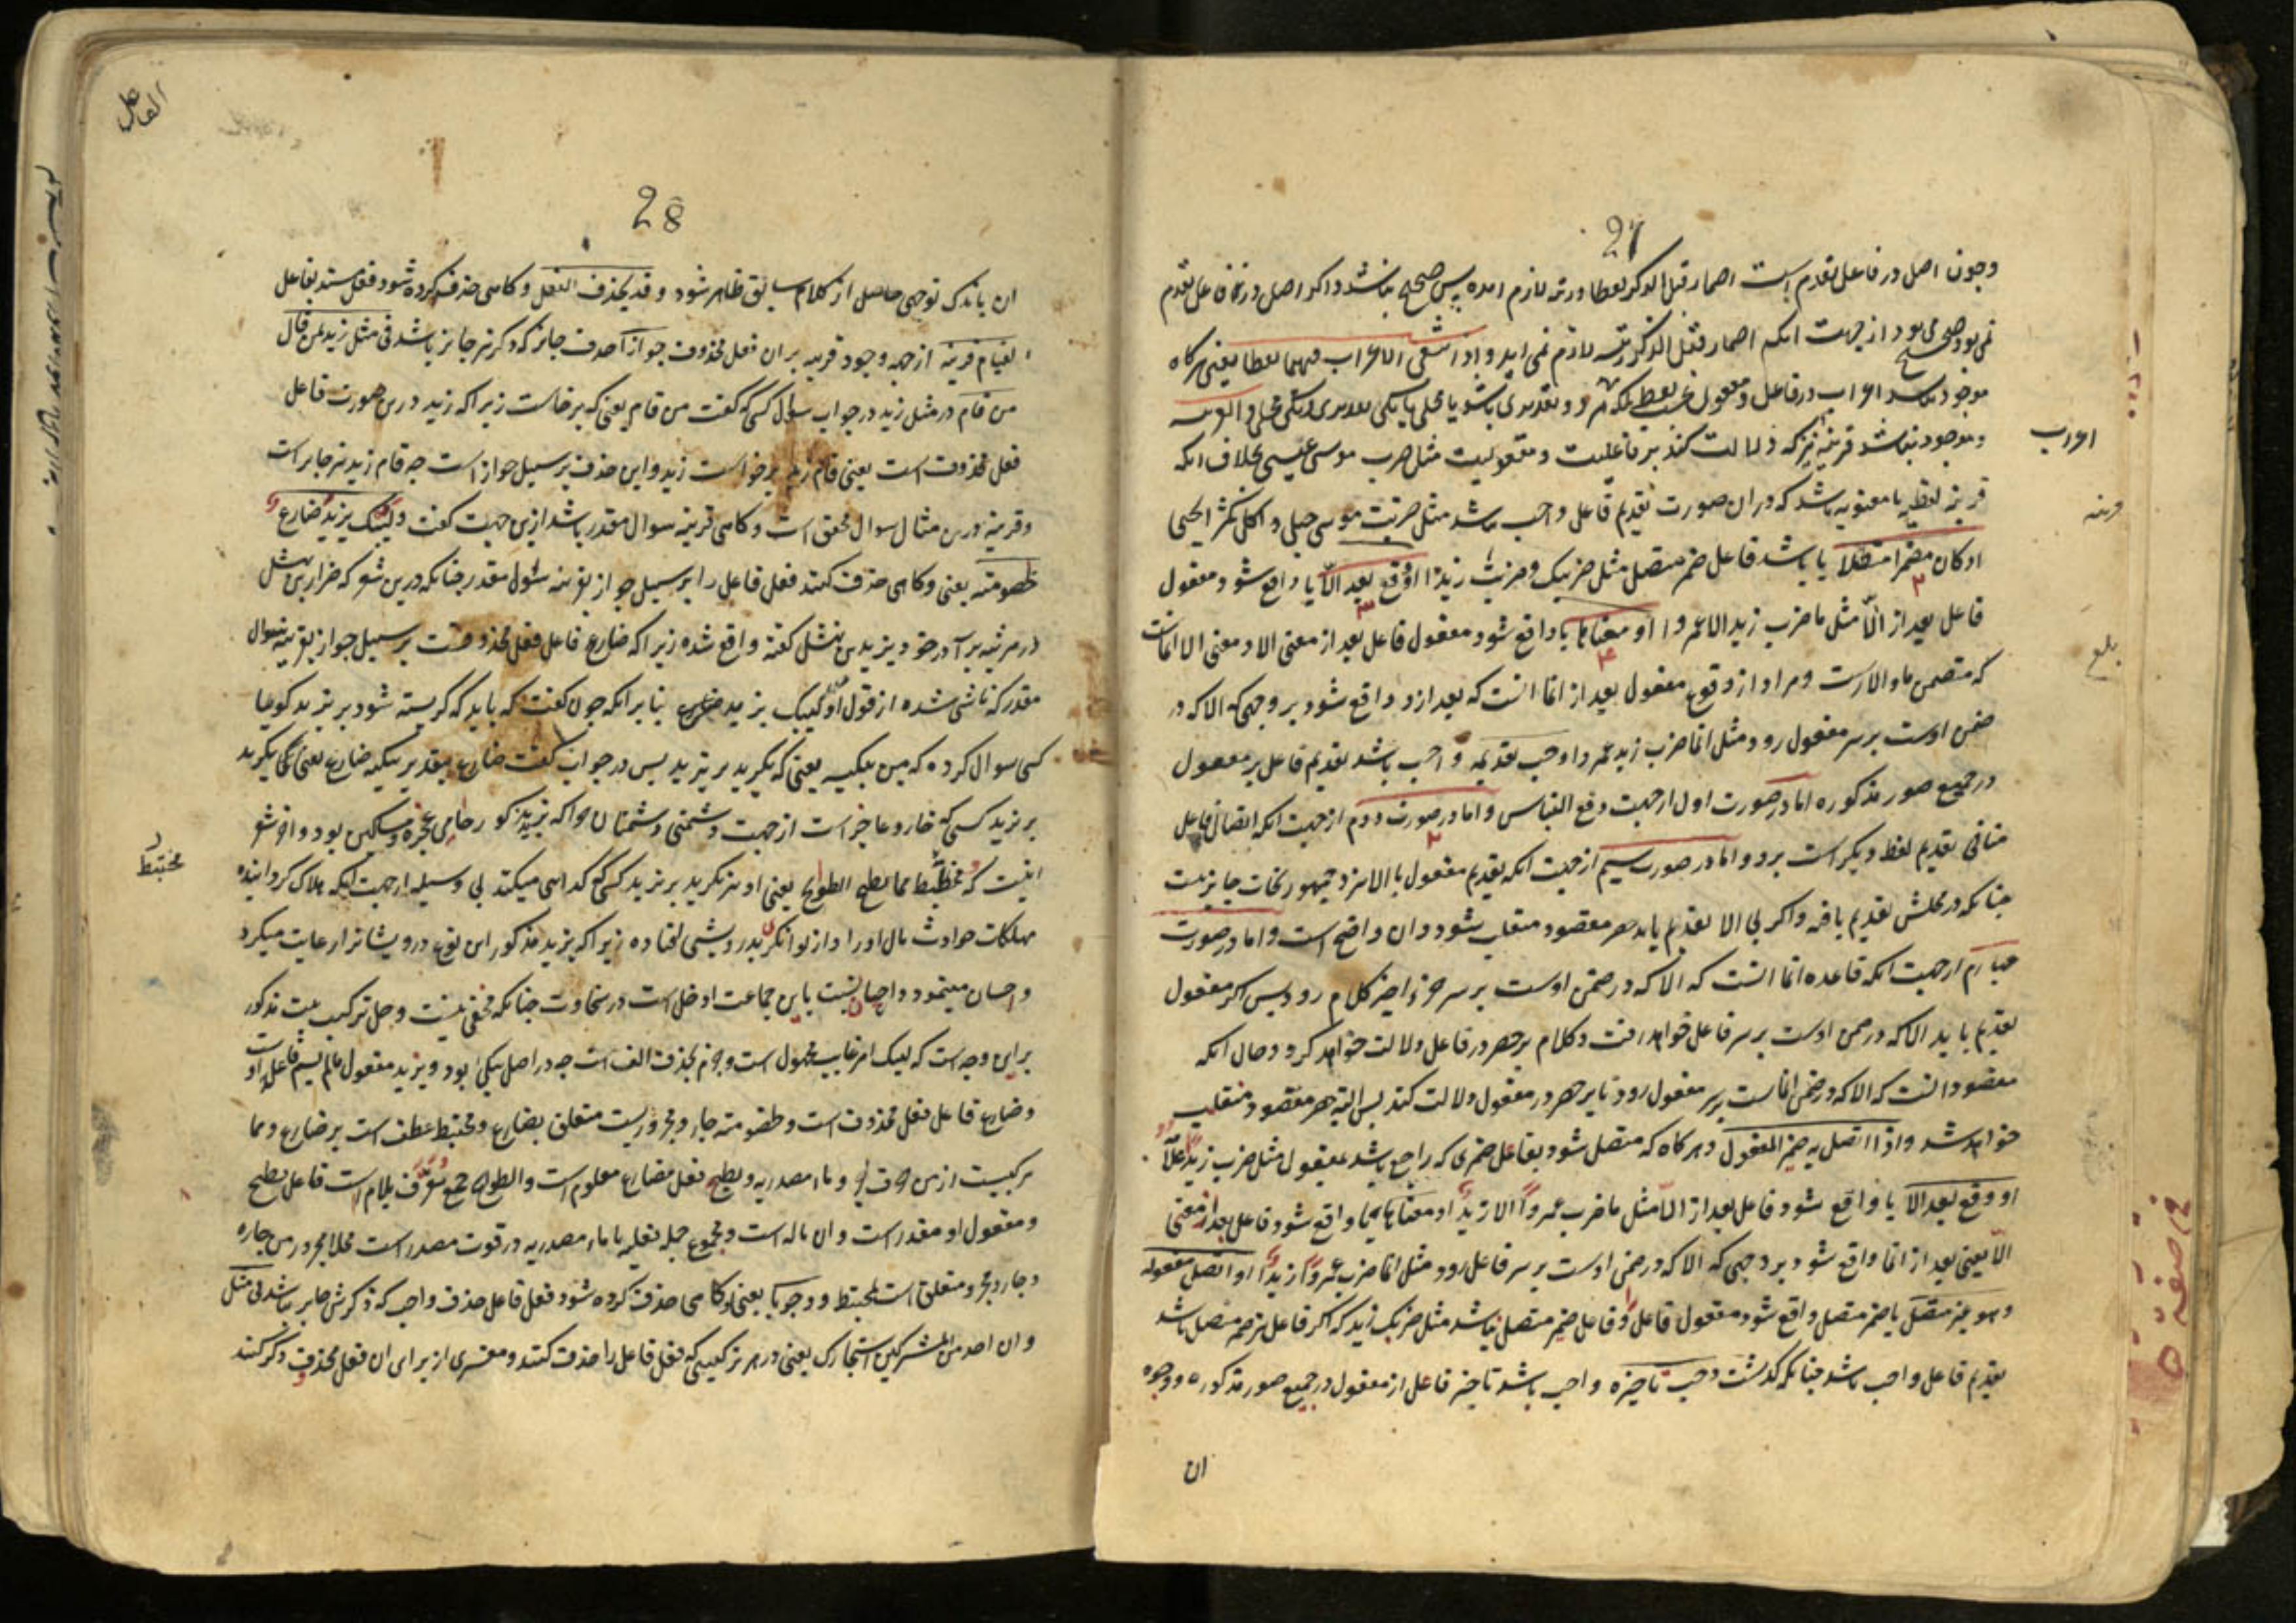 27
وچون اصل در فاعل تقدم است اضمار قبل الذکر لفظا ورتبة لازم امده پس صحیح نباشد واکر اصل در فاعل تقدم
نمی بود صحیح می بود از جهت انکه اضمار قبل الذکر رتبة لازم نمی اید واذا انتفی الاعراب فیهما لفظا یعنی هرکاه
موجود نباشد اعراب در فاعل ومفعول بحسب لفظ بلکه هر دو تقدیری باشد یا محلی یا یکی تقدیری ویکی محلی والقرینة
وموجود نباشد قرینه نیز که دلالت کند بر فاعلیت ومفعولیت مثل ضرب موسی عیسی بخلاف انکه
قرینه لفظیه یا معنویه باشد که دران صورت تقدیم فاعل واجب نباشد مثل ضربت موسی حبلی واکل کمثری یحیی
او کان مضمرا متصلا یا باشد فاعل ضمیر متصل مثل ضربتک وضربت زیدا او وقع بعد الا یا واقع شود مفعول
فاعل بعد از الا مثل ما ضرب زید الا عمروا او معناها یا واقع شود مفعول فاعل بعد از معنی الا ومعنی الا انماست
که متضمن ما والا است ومراد از وقوع مفعول بعد از انما انست که بعد ازو واقع شود بر وجهی که الا که در
ضمن اوست بر سر مفعول رود مثل انما ضرب زید عمروا وجب تقدیمه واجب باشد تقدیم فاعل بر مفعول
در جمیع صور مذکوره اما در صورت اول از جهت دفع التباس واما در صورت دوم از جهت انکه اتصال فاعل
منافی تقدیم لفظ دیکر است برو واما در صورت سیم از جهت انکه تقدیم مفعول با الا نزد جمهور نحات جایز نیست
چنانکه در محلش تقدیم یافته واکر بی الا تقدیم یابد حصر مقصود منقلب شود وان واضح است واما در صورت
چهارم از جهت انکه قاعده انما انست که الا که در ضمن اوست بر سر جزء اخیر کلام رود پس اکر مفعول
تقدیم یابد الا که در ضمن اوست بر سر فاعل خواهد رفت وکلام بر حصر در فاعل دلالت خواهد کرد وحال انکه
مقصود انست که الا که در ضمن انماست بر سر مفعول رود تا بر حصر در مفعول دلالت کند پس البته حصر مقصود منقلب
خواهد شد واذا اتصل به ضمیر المفعول وهرکاه که متصل شود بفاعل ضمیری که راجع باشد بمفعول مثل ضرب زیدا غلامه
او وقع بعد الا یا واقع شود فاعل بعد از الا مثل ما ضرب عمروا الا زید او معناها یا واقع شود فاعل بعد از معنی
الا یعنی بعد از انما واقع شود بر وجهی که الا که در ضمن اوست بر سر فاعل رود مثل انما ضرب عمروا زید او اتصل مفعوله
وهو غیر متصل یا ضمیر متصل واقع شود مفعول فاعل وفاعل ضمیر متصل نباشد مثل ضربک زید که اکر فاعل نیز ضمیر متصل باشد
تقدیم فاعل واجب باشد چنانکه کذشت وجب تاخیره واجب باشد تاخیر فاعل از مفعول در جمیع صور مذکوره ووجوه
ان
اعراب
قرینه
بلغ
28
ان باندک توجهی حاصل از کلام سابق ظاهر شود وقد یحذف الفعل وکاهی حذف کرده شود فعل مسند بفاعل
لقیام قرینة از جهة وجود قرینه بران فعل محذوف جوازا حذف جایز که ذکر نیز جایز باشد فی مثل زید لمن قال
من قام در مثل زید در جواب سؤال کسی که کفت من قام یعنی که برخاست زیرا که زید درین صورت فاعل
فعل محذوف است یعنی قام زید برخواست زید واین حذف بر سبیل جواز است چه قام زید نیز جایز است
وقرینه درین مثال سوال محقق است وکاهی قرینه سوال مقدر باشد ازین جهت کفت ولیبک یزید ضارع
لخصومة یعنی وکاهی حذف کنند فعل فاعل را بر سبیل جواز بقرینه سئول مقدر چنانکه درین شعر که ضرار بن نهشل
در مرثیه برادر خود یزید بن نهشل کفته واقع شده زیرا که ضارع فاعل فعل محذوفست بر سبیل جواز بقرینه سوال
مقدر که ناشی شده از قول او لیبک یزید ضارع بنا بر انکه چون کفت که باید که کریسته شود بر یزید کوئیا
کسی سوال کرده که من یبکیه یعنی که بکرید بر یزید پس در جواب کفت ضارع بتقدیر یبکیه ضارع یعنی بکرید
بر یزید کسی که خار وعاجز است از جهت دشمنی دشمنان چراکه یزید مذکور حامی عجزه ومساکین بود واخر شعر
اینست که ومختبط مما تطیح الطوایح یعنی او نیز بکرید بر یزید کسی که کدایی میکند بی وسیله از جهت انکه هلاک کردانیده
مهلکات حوادث مال او را واز توانکری بدرویشی افتاده زیرا که یزید مذکور این نوع درویشانرا رعایت میکرد
واحسان مینمود واحسان نسبت باین جماعت ادخل است در سخاوت چنانکه مخفی نیست وحل ترکیب بیت مذکور
براین وجه است که لیبک امر غایب مجهول است وجزم بحذف الف است چه در اصل یبکی بود ویزید مفعول مالم یسم فاعله اوست
وضارع فاعل فعل محذوف است ولخصومة جار ومجروریست متعلق بضارع ومختبط عطف است بر ضارع ومما
مرکبست از من حرف جر وماء مصدریه وتطیح فعل مضارع معلوم است والطوایح جمع معرف بلام است فاعل تطیح
ومفعول او مقدر است وان ماله است ومجموع جمله فعلیه با ماء مصدریه در قوت مصدر است محلا مجرور من جاره
وجار ومجرور متعلق است بمختبط ووجوبا یعنی وکاهی حذف کرده شود فعل فاعل حذف واجب که ذکرش جایز نباشد فی مثل
وان احد من المشرکین استجارک یعنی در هر ترکیبی که فعل فاعل را حذف کنند ومفسری از برای ان فعل محذوف ذکر کنند
مختبط
الفاعل